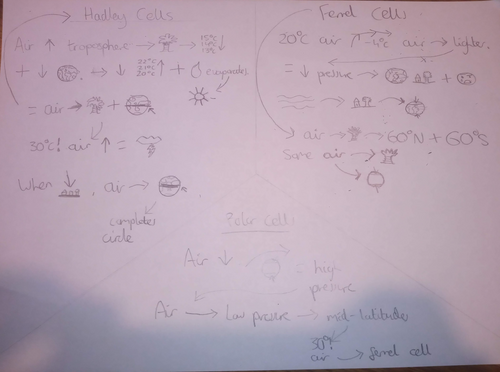 Hadley Cells
Air ↑ troposphere → → ↓
+ ↓ ↔ ↓ ↑ + evaporates
= air → +
30°C! air ↑ =
When ↓ , air →
completes
circle
Ferrel Cells
20°C air ↑ → air → lighter.
= ↓ pressure → +
→ →
air → → 60°N + 60°S
Same air →
Polar Cells
Air ↓ = high
pressure
Air → Low pressure → mid-latitudes
30%
air → Ferrel cell